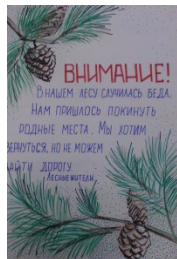 ВНИМАНИЕ!
В НАШЕМ ЛЕСУ СЛУЧИЛАСЬ БЕДА.
НАМ ПРИШЛОСЬ ПОКИНУТЬ
РОДНЫЕ МЕСТА. МЫ ХОТИМ
ВЕРНУТЬСЯ, НО НЕ МОЖЕМ
НАЙТИ ДОРОГУ.
ЛЕСНЫЕ ЖИТЕЛИ.